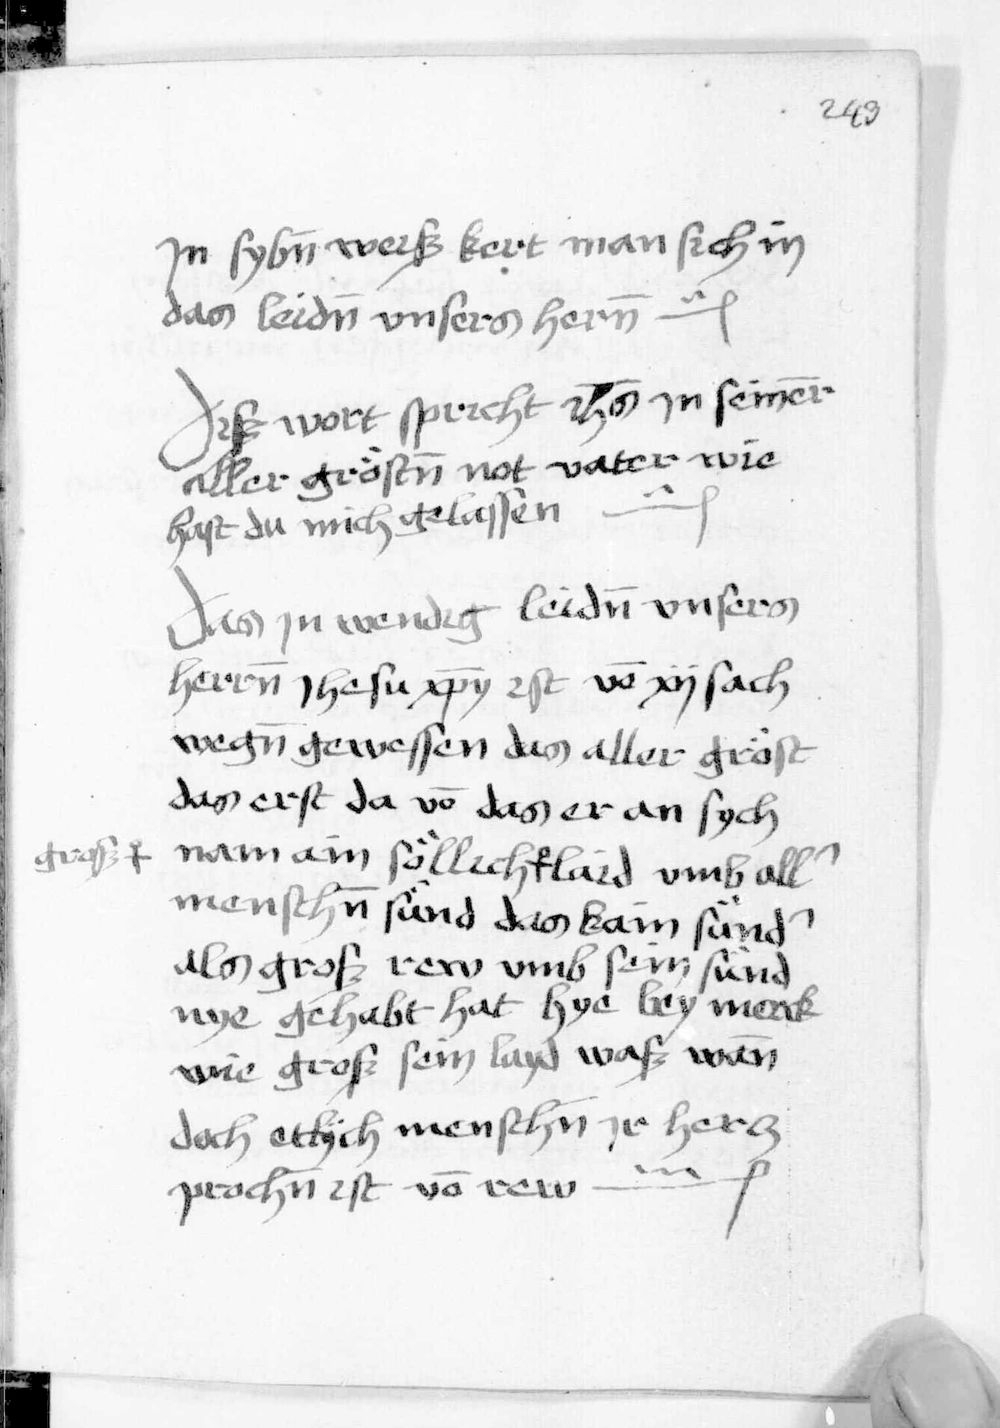 249
In sybn̄ weiſz kert man sich in
das leidn̄ vnsers hern̄
Disz wort spricht ihs̄ in seinē̄r
aller gröstn̄ not vater wie
hast du mich gelassen
Das in wendig leidn̄ vnsers
herrn̄ Ihesu xp̄ȳ ist vō xij sach
wegn̄ gewessen das aller gröst
das erst da vō das er an sych
grosz ☨ nam ain söllich ☨ laid vmb all᾽
menschn̄ sünd das kain sünd᾽
als grosz rew vmb sein sünd
nye gehabt hat hye bey merck
wie grosz sein layd wasz wān̄
doch etlych menschn̄ ir hercz
prochn̄ ist vō rew